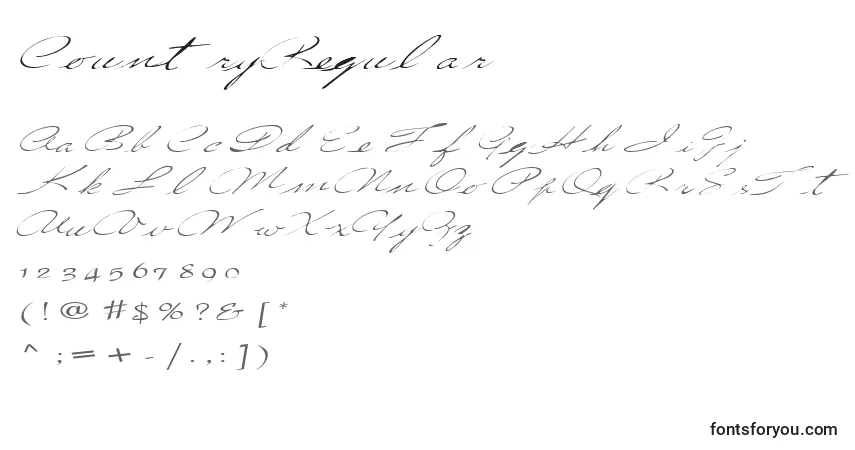 CountryRegular
Aa Bb Cc Dd Ee Ff Gg Hh Ii Jj
Kk Ll Mm Nn Oo Pp Qq Rr Ss Tt
Uu Vv Ww Xx Yy Zz
1234567890
(!@#$%?&[*
^;=+-/.,:])
fontsforyou.com